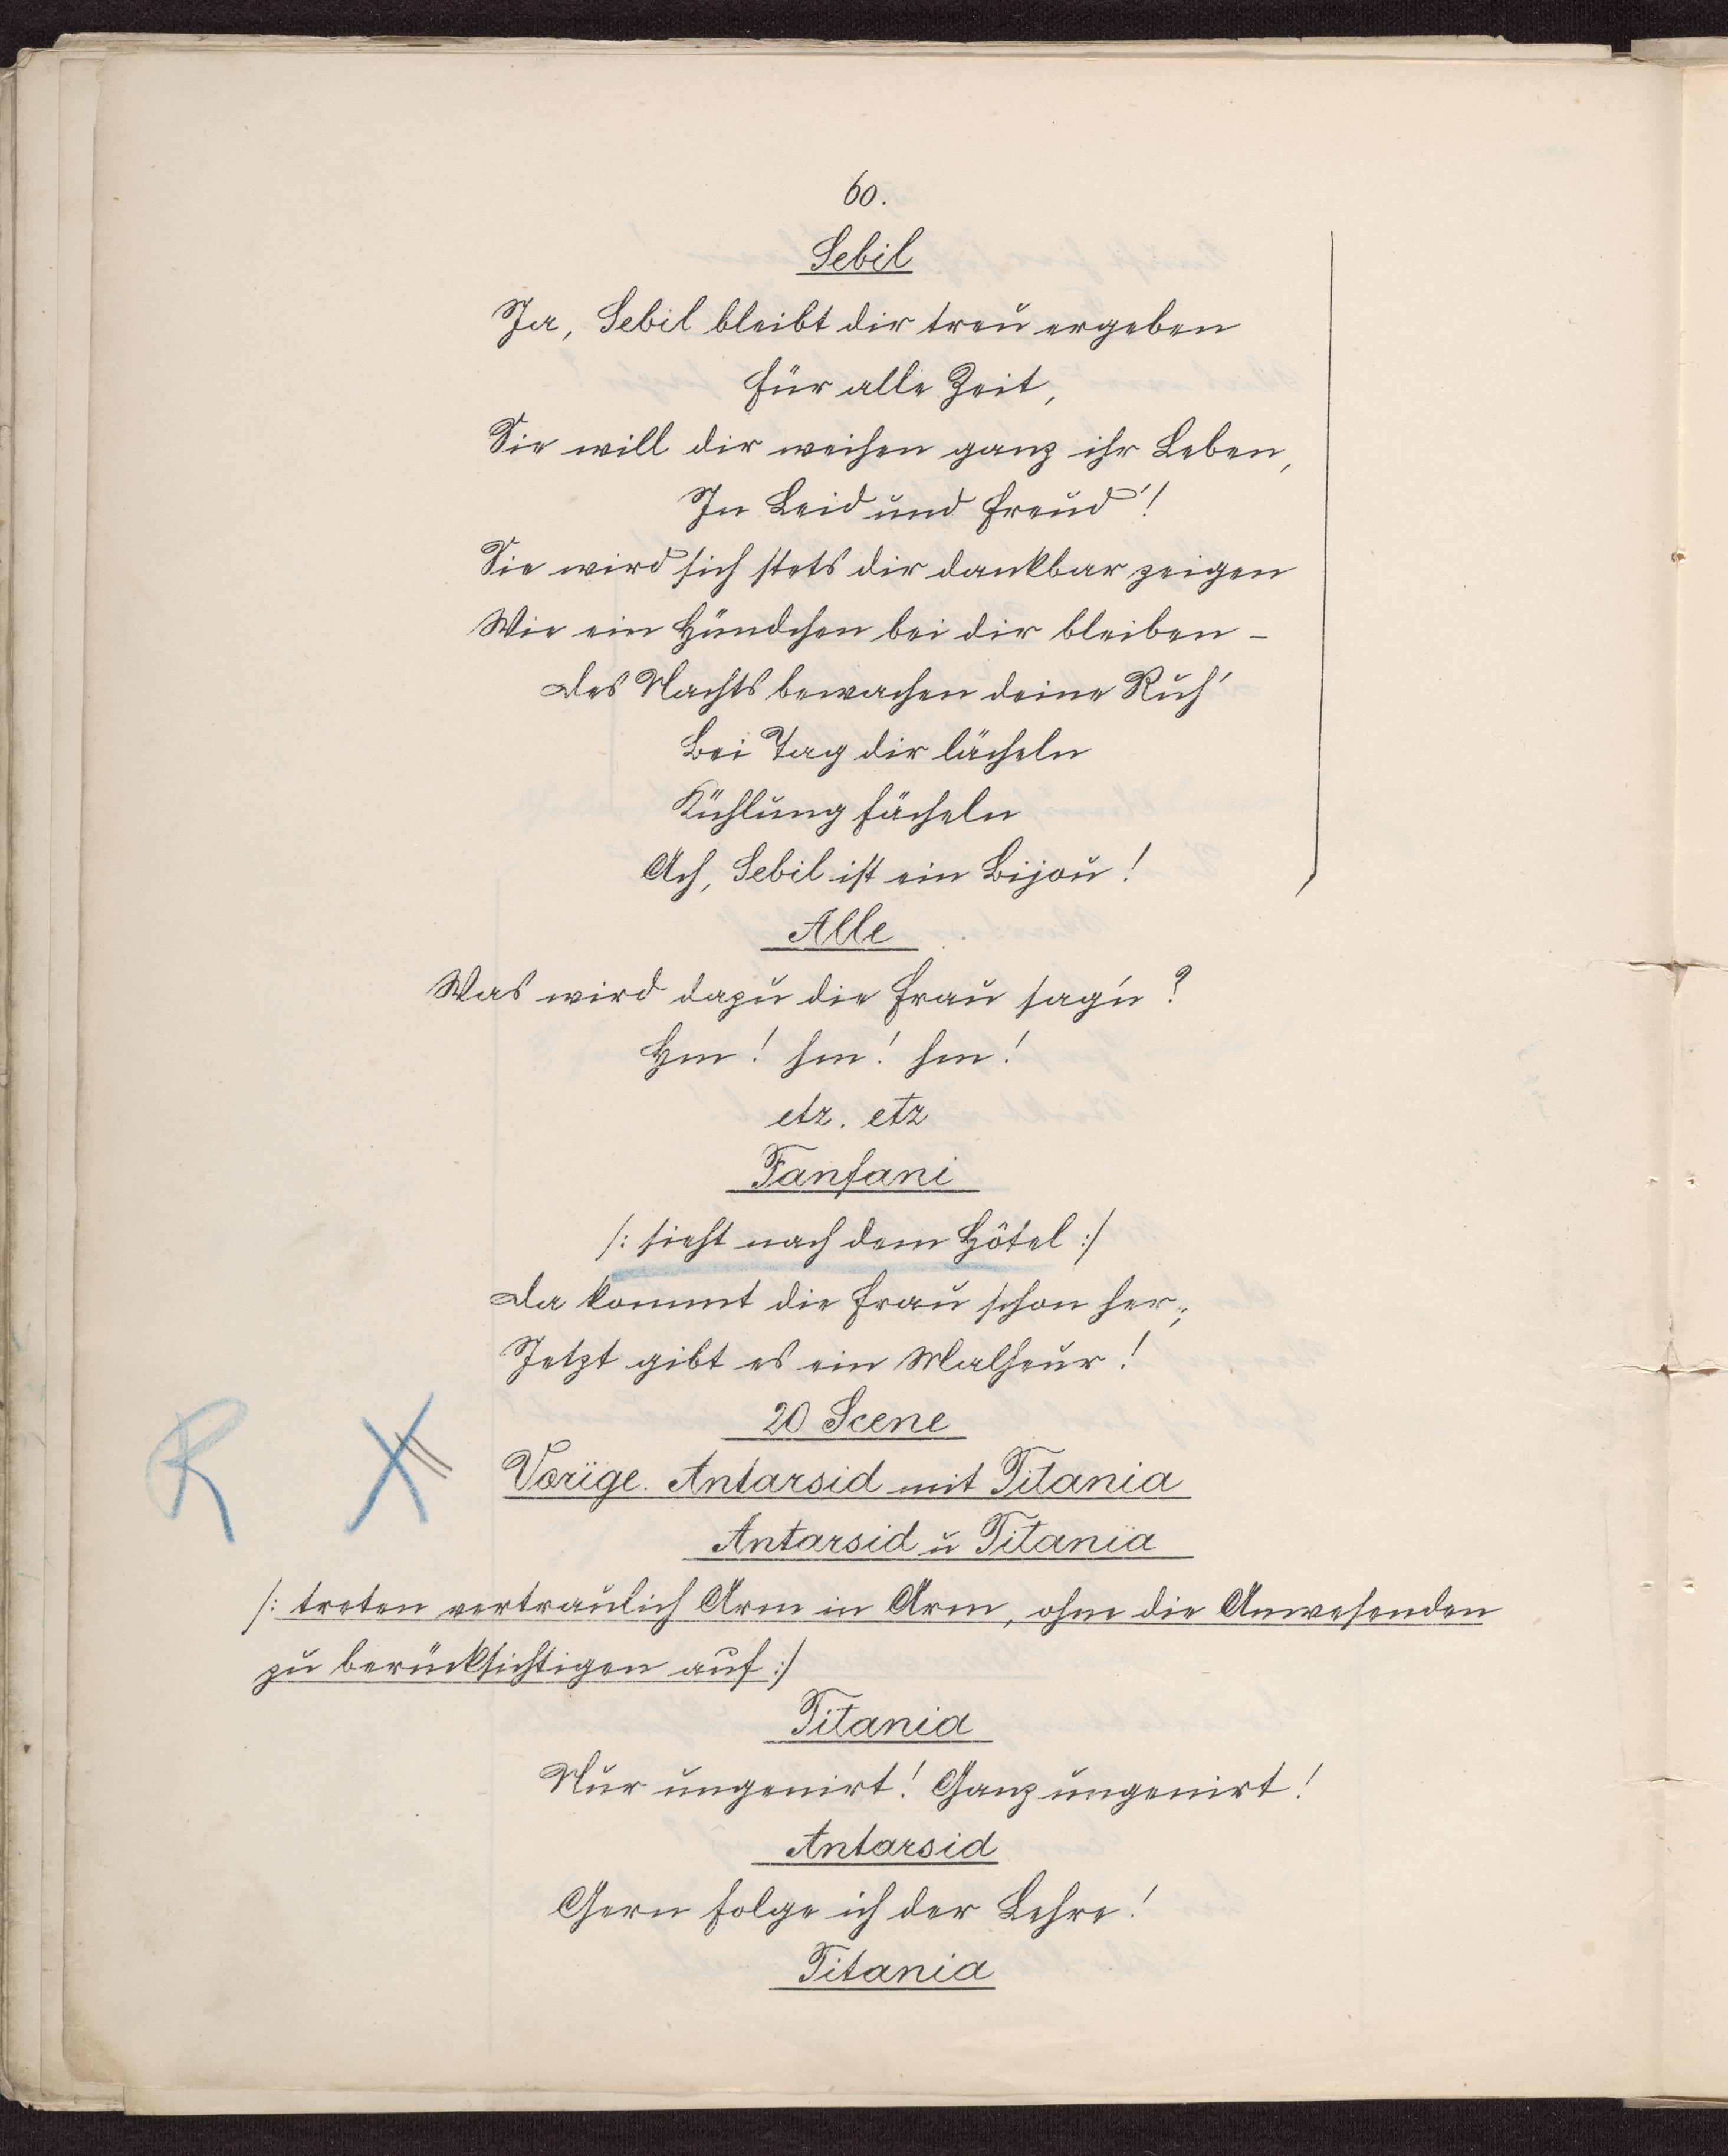 60.
Sebil
Ja, Sebil bleibt dir treu ergeben
Für alle Zeit,
Sie will dir weihen ganz ihr Leben,
In Leid und Freud'!
Sie wird sich stets dir dankbar zeigen
Wie ein Hündchen bei dir bleiben –
Des Nachts bewachen deine Ruh'
Bei Tag dir lächeln
Kühlung fächeln
Ach, Sebil ist ein Bijou!
Alle
Was wird dazu die Frau sag'n?
Hm! hm! hm!
etz. etz
Fanfani
/: sieht nach dem Hôtel :/
Da kommt die Frau schon her;
Jetzt gibt es ein Malheur!
20 Scene
R X Vorige. Antarsid mit Titania
Antarsid u Titania
/: treten vertraulich Arm in Arm, ohne die Anwesenden
zu berücksichtigen auf :/
Titania
Nur ungenirt! Ganz ungenirt!
Antarsid
Gern folge ich der Lehre!
Titania